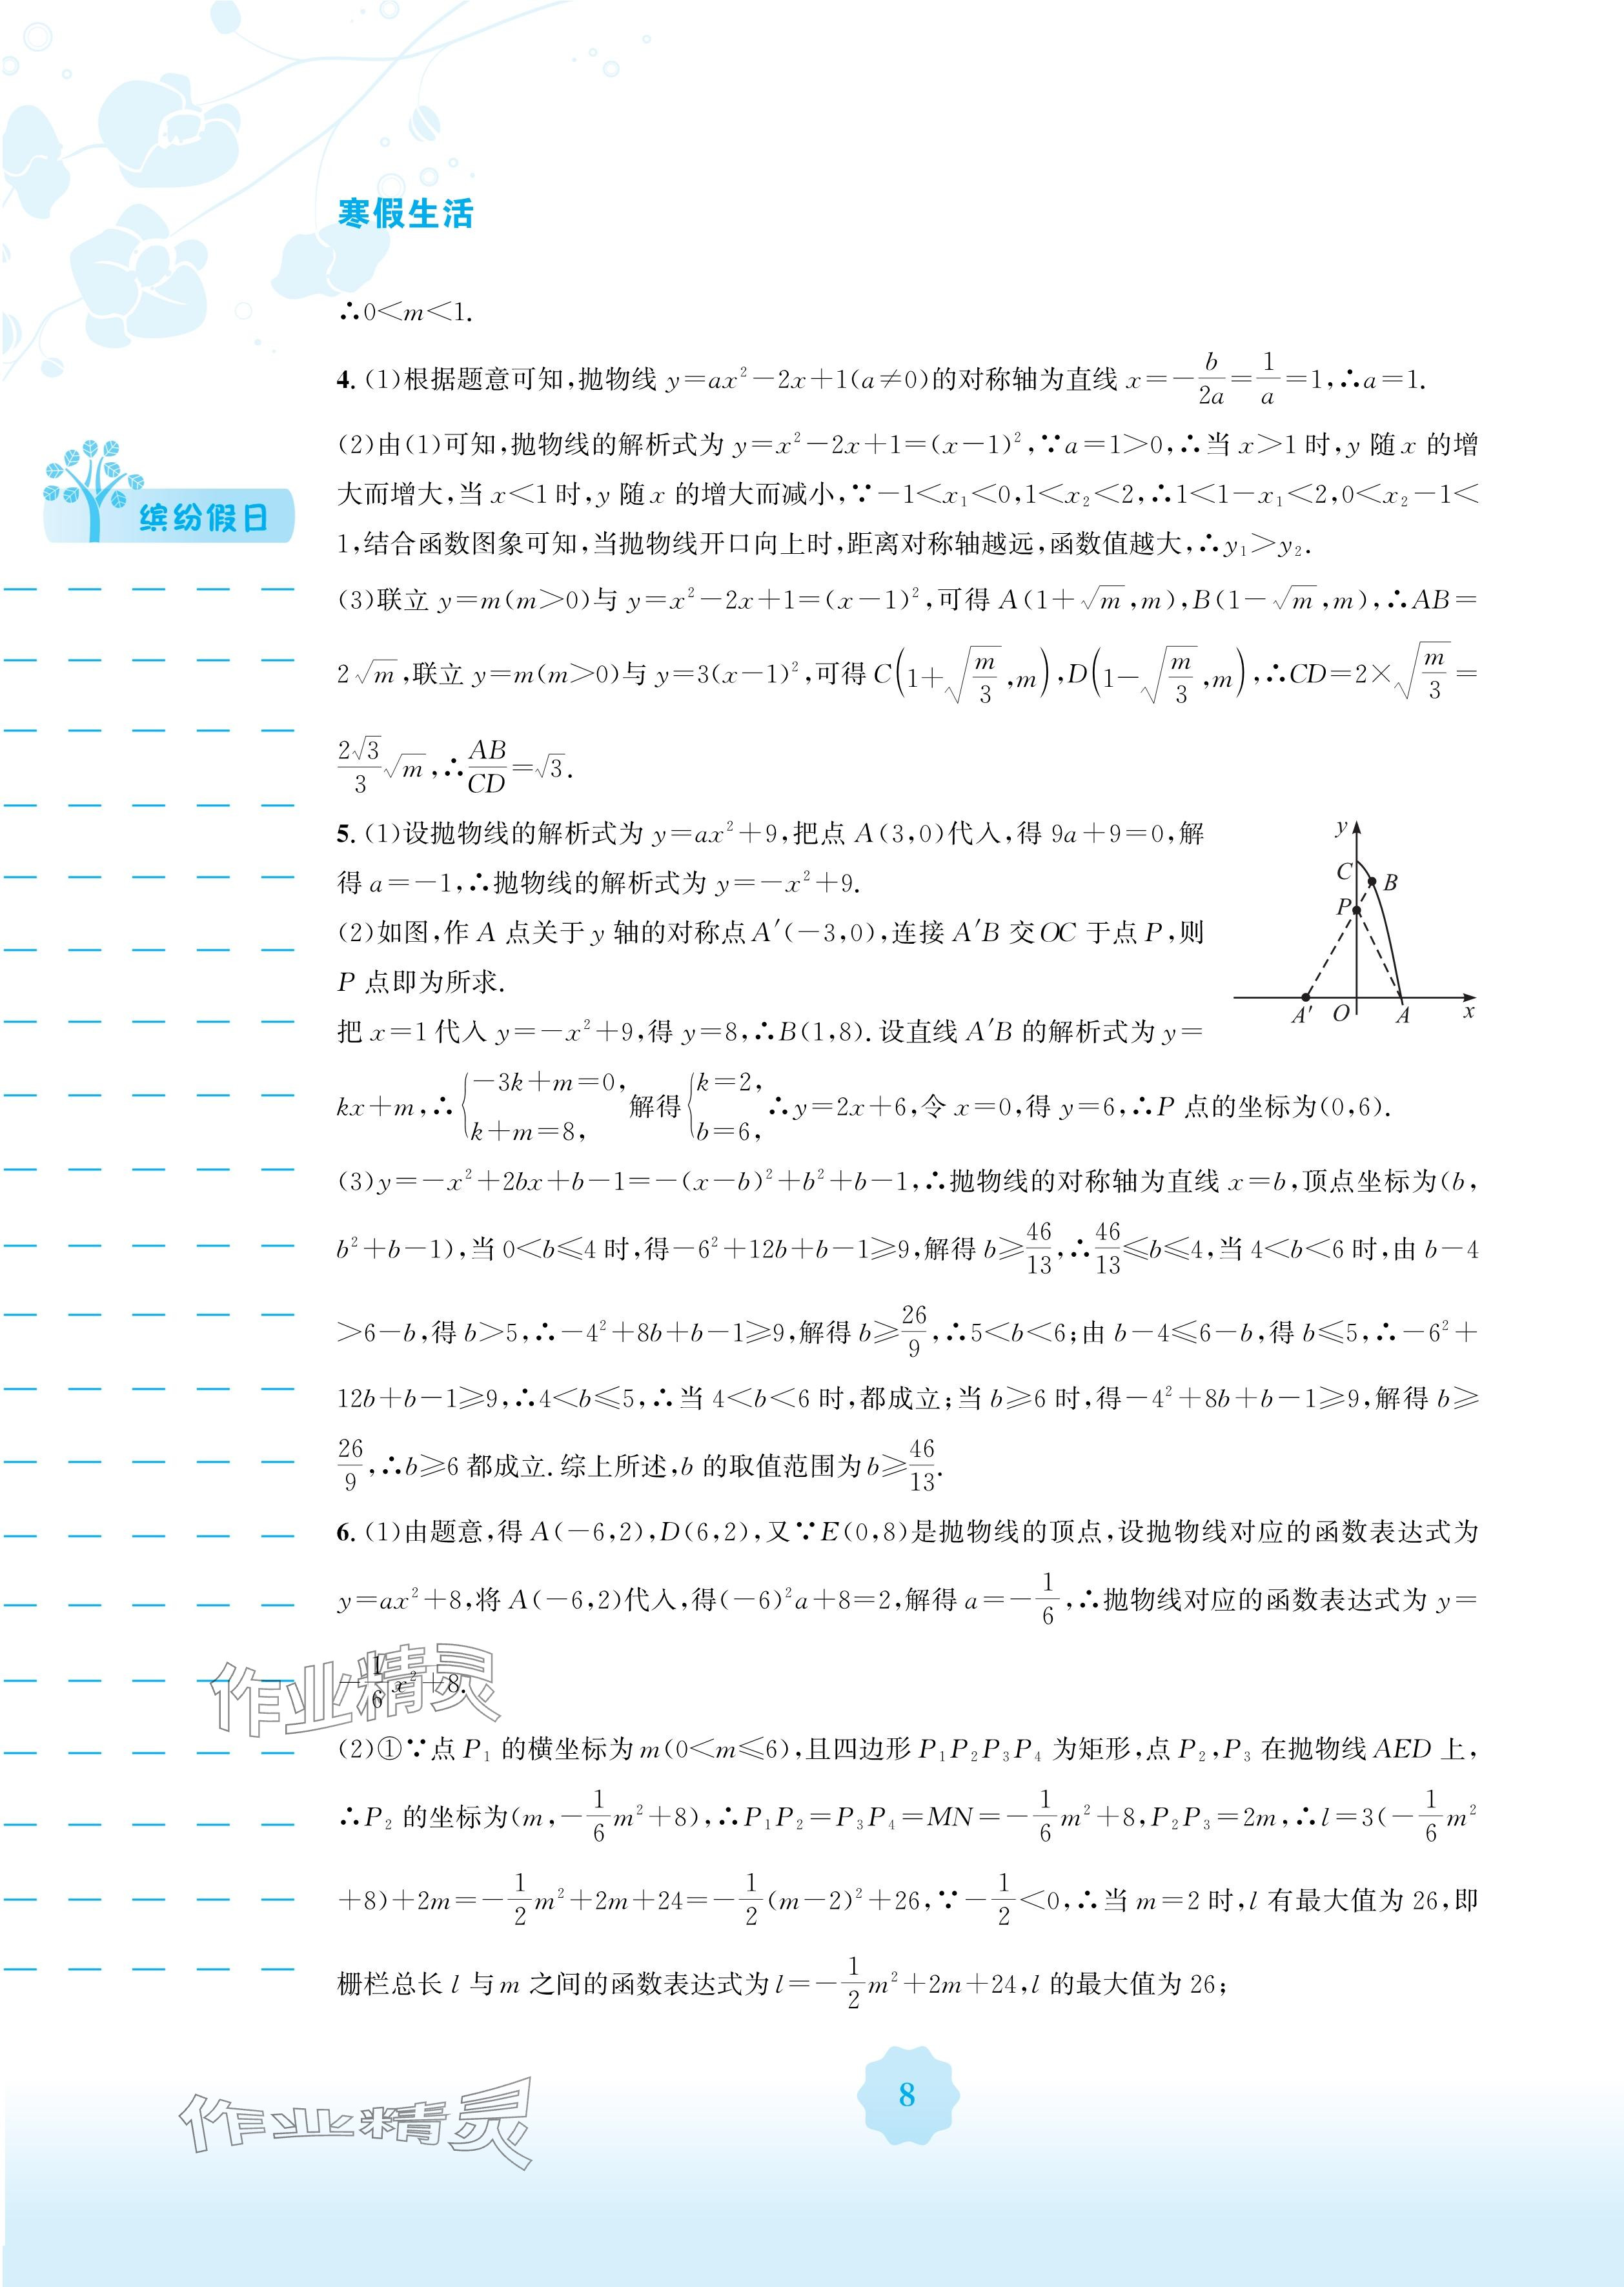 寒假生活
∴0<m<1.
4. (1)根据题意可知,抛物线 y=ax²-2x+1(a≠0)的对称轴为直线 x=-b/2a=1/a=1,∴a=1.
(2)由(1)可知,抛物线的解析式为 y=x²-2x+1=(x-1)²,∵a=1>0,∴当 x>1 时,y 随 x 的增
大而增大,当 x<1 时,y 随 x 的增大而减小,∵-1<x₁<0,1<x₂<2,∴1<1-x₁<2,0<x₂-1<
1,结合函数图象可知,当抛物线开口向上时,距离对称轴越远,函数值越大,∴y₁>y₂.
(3)联立 y=m(m>0)与 y=x²-2x+1=(x-1)²,可得 A(1+√m,m),B(1-√m,m),∴AB=
2√m,联立 y=m(m>0)与 y=3(x-1)²,可得 C(1+√(m/3),m),D(1-√(m/3),m),∴CD=2×√(m/3)=
2√3/3 √m,∴AB/CD=√3.
5. (1)设抛物线的解析式为 y=ax²+9,把点 A(3,0)代入,得 9a+9=0,解
得 a=-1,∴抛物线的解析式为 y=-x²+9.
(2)如图,作 A 点关于 y 轴的对称点 A′(-3,0),连接 A′B 交 OC 于点 P,则
P 点即为所求.
把 x=1 代入 y=-x²+9,得 y=8,∴B(1,8). 设直线 A′B 的解析式为 y=
kx+m,∴{-3k+m=0, k+m=8, 解得{k=2, b=6, ∴y=2x+6,令 x=0,得 y=6,∴P 点的坐标为(0,6).
y
C
B
P
A′
O
A
x
(3)y=-x²+2bx+b-1=-(x-b)²+b²+b-1,∴抛物线的对称轴为直线 x=b,顶点坐标为(b,
b²+b-1),当 0<b≤4 时,得-6²+12b+b-1≥9,解得 b≥46/13,∴46/13≤b≤4,当 4<b<6 时,由 b-4
>6-b,得 b>5,∴-4²+8b+b-1≥9,解得 b≥26/9,∴5<b<6;由 b-4≤6-b,得 b≤5,∴-6²+
12b+b-1≥9,∴4<b≤5,∴当 4<b<6 时,都成立;当 b≥6 时,得-4²+8b+b-1≥9,解得 b≥
26/9,∴b≥6 都成立. 综上所述,b 的取值范围为 b≥46/13.
6. (1)由题意,得 A(-6,2),D(6,2),又∵E(0,8)是抛物线的顶点,设抛物线对应的函数表达式为
y=ax²+8,将 A(-6,2)代入,得(-6)²a+8=2,解得 a=-1/6,∴抛物线对应的函数表达式为 y=
-1/6x²+8.
(2)①∵点 P₁ 的横坐标为 m(0<m≤6),且四边形 P₁P₂P₃P₄ 为矩形,点 P₂,P₃ 在抛物线 AED 上,
∴P₂ 的坐标为(m,-1/6m²+8),∴P₁P₂=P₃P₄=MN=-1/6m²+8,P₂P₃=2m,∴l=3(-1/6m²
+8)+2m=-1/2m²+2m+24=-1/2(m-2)²+26,∵-1/2<0,∴当 m=2 时,l 有最大值为 26,即
栅栏总长 l 与 m 之间的函数表达式为 l=-1/2m²+2m+24,l 的最大值为 26;
缤纷假日
作业精灵
作业精灵
8